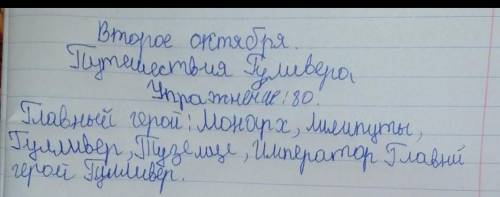 Второе октября.
Путешествия Гуливера
Упражнение: 80.
Главный герой: Монарх, лилипуты,
Гулливер, Туземце, Император Главнй
герой Гулливер.